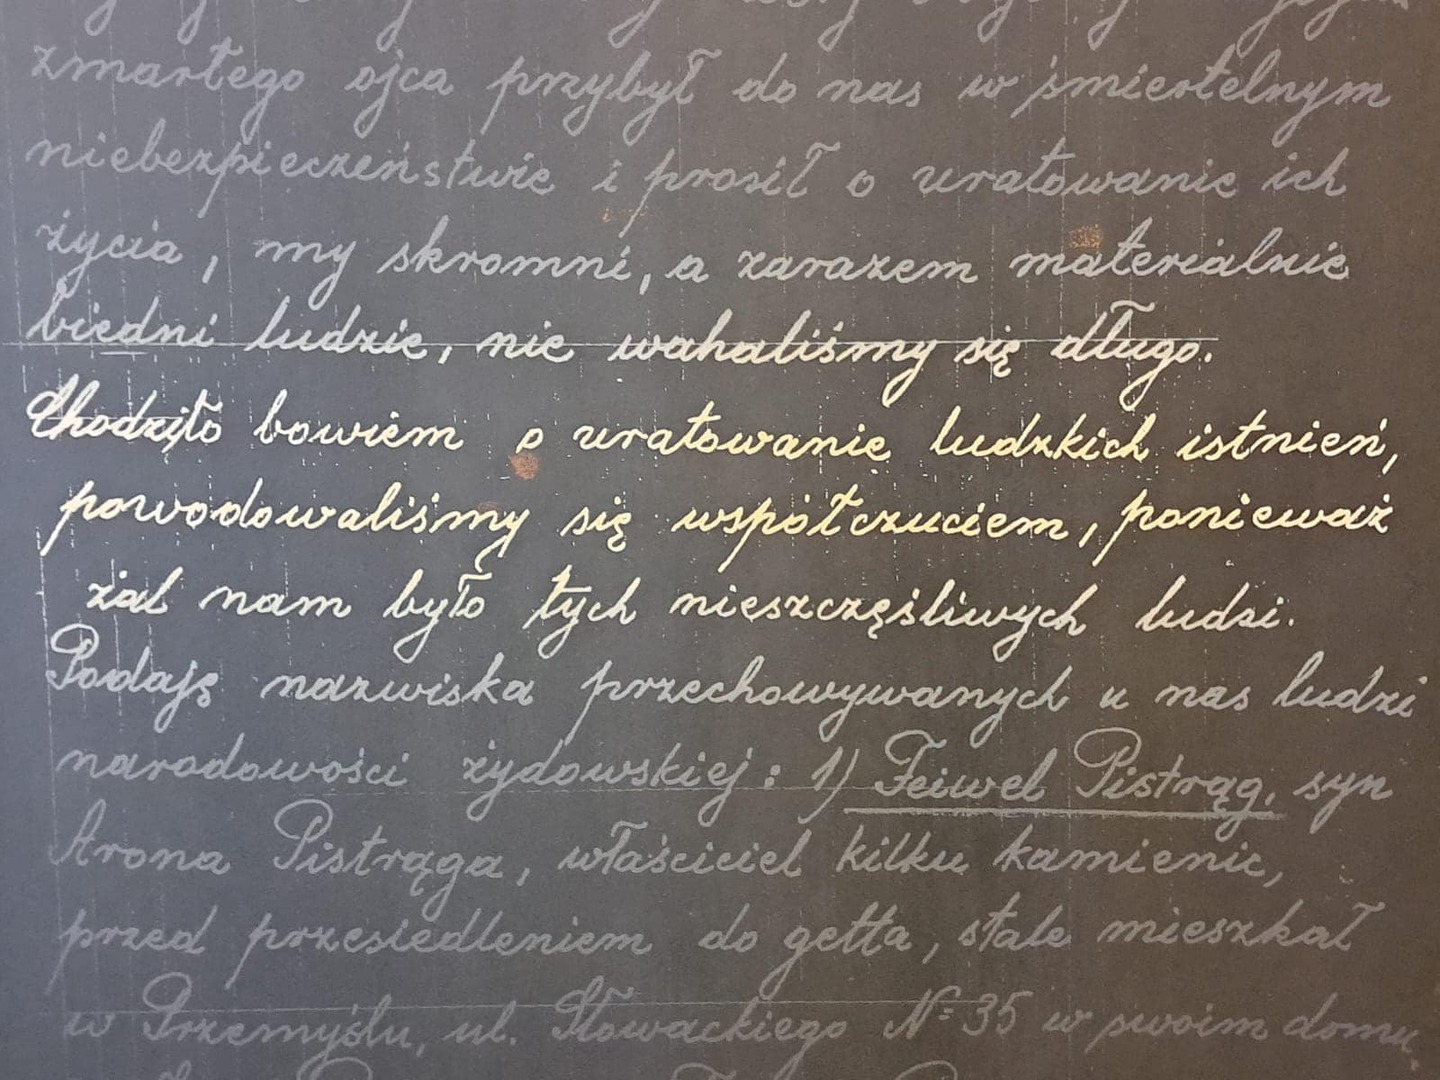 zmarłego ojca przybył do nas w śmiertelnym
niebezpieczeństwie i prosił o uratowanie ich
życia, my skromni, a zarazem materialnie
biedni ludzie, nie wahaliśmy się długo.
Chodziło bowiem o uratowanie ludzkich istnień,
powodowaliśmy się współczuciem, ponieważ
żal nam było tych nieszczęśliwych ludzi.
Podaję nazwiska przechowywanych u nas ludzi
narodowości żydowskiej: 1) Feiwel Pistrąg, syn
Arona Pistrąga, właściciel kilku kamienic,
przed przesiedleniem do getta, stale mieszkał
w Przemyślu, ul. Słowackiego № 35 w swoim domu,